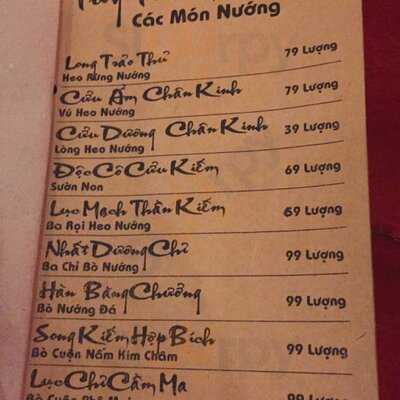 Các Món Nướng
Long Trảo Thủ 79 Lượng
Heo Rừng Nướng
Cửu Âm Chân Kinh 79 Lượng
Vú Heo Nướng
Cửu Dương Chân Kinh 39 Lượng
Lòng Heo Nướng
Độc Cô Cửu Kiếm 69 Lượng
Sườn Non
Lục Mạch Thần Kiếm 69 Lượng
Ba Rọi Heo Nướng
Nhất Dương Chỉ 99 Lượng
Ba Chỉ Bò Nướng
Hàn Băng Chưởng 99 Lượng
Bò Nướng Đá
Song Kiếm Hợp Bích 99 Lượng
Bò Cuộn Nấm Kim Châm
Lục Chỉ Cầm Ma 99 Lượng
Bò Cuộn